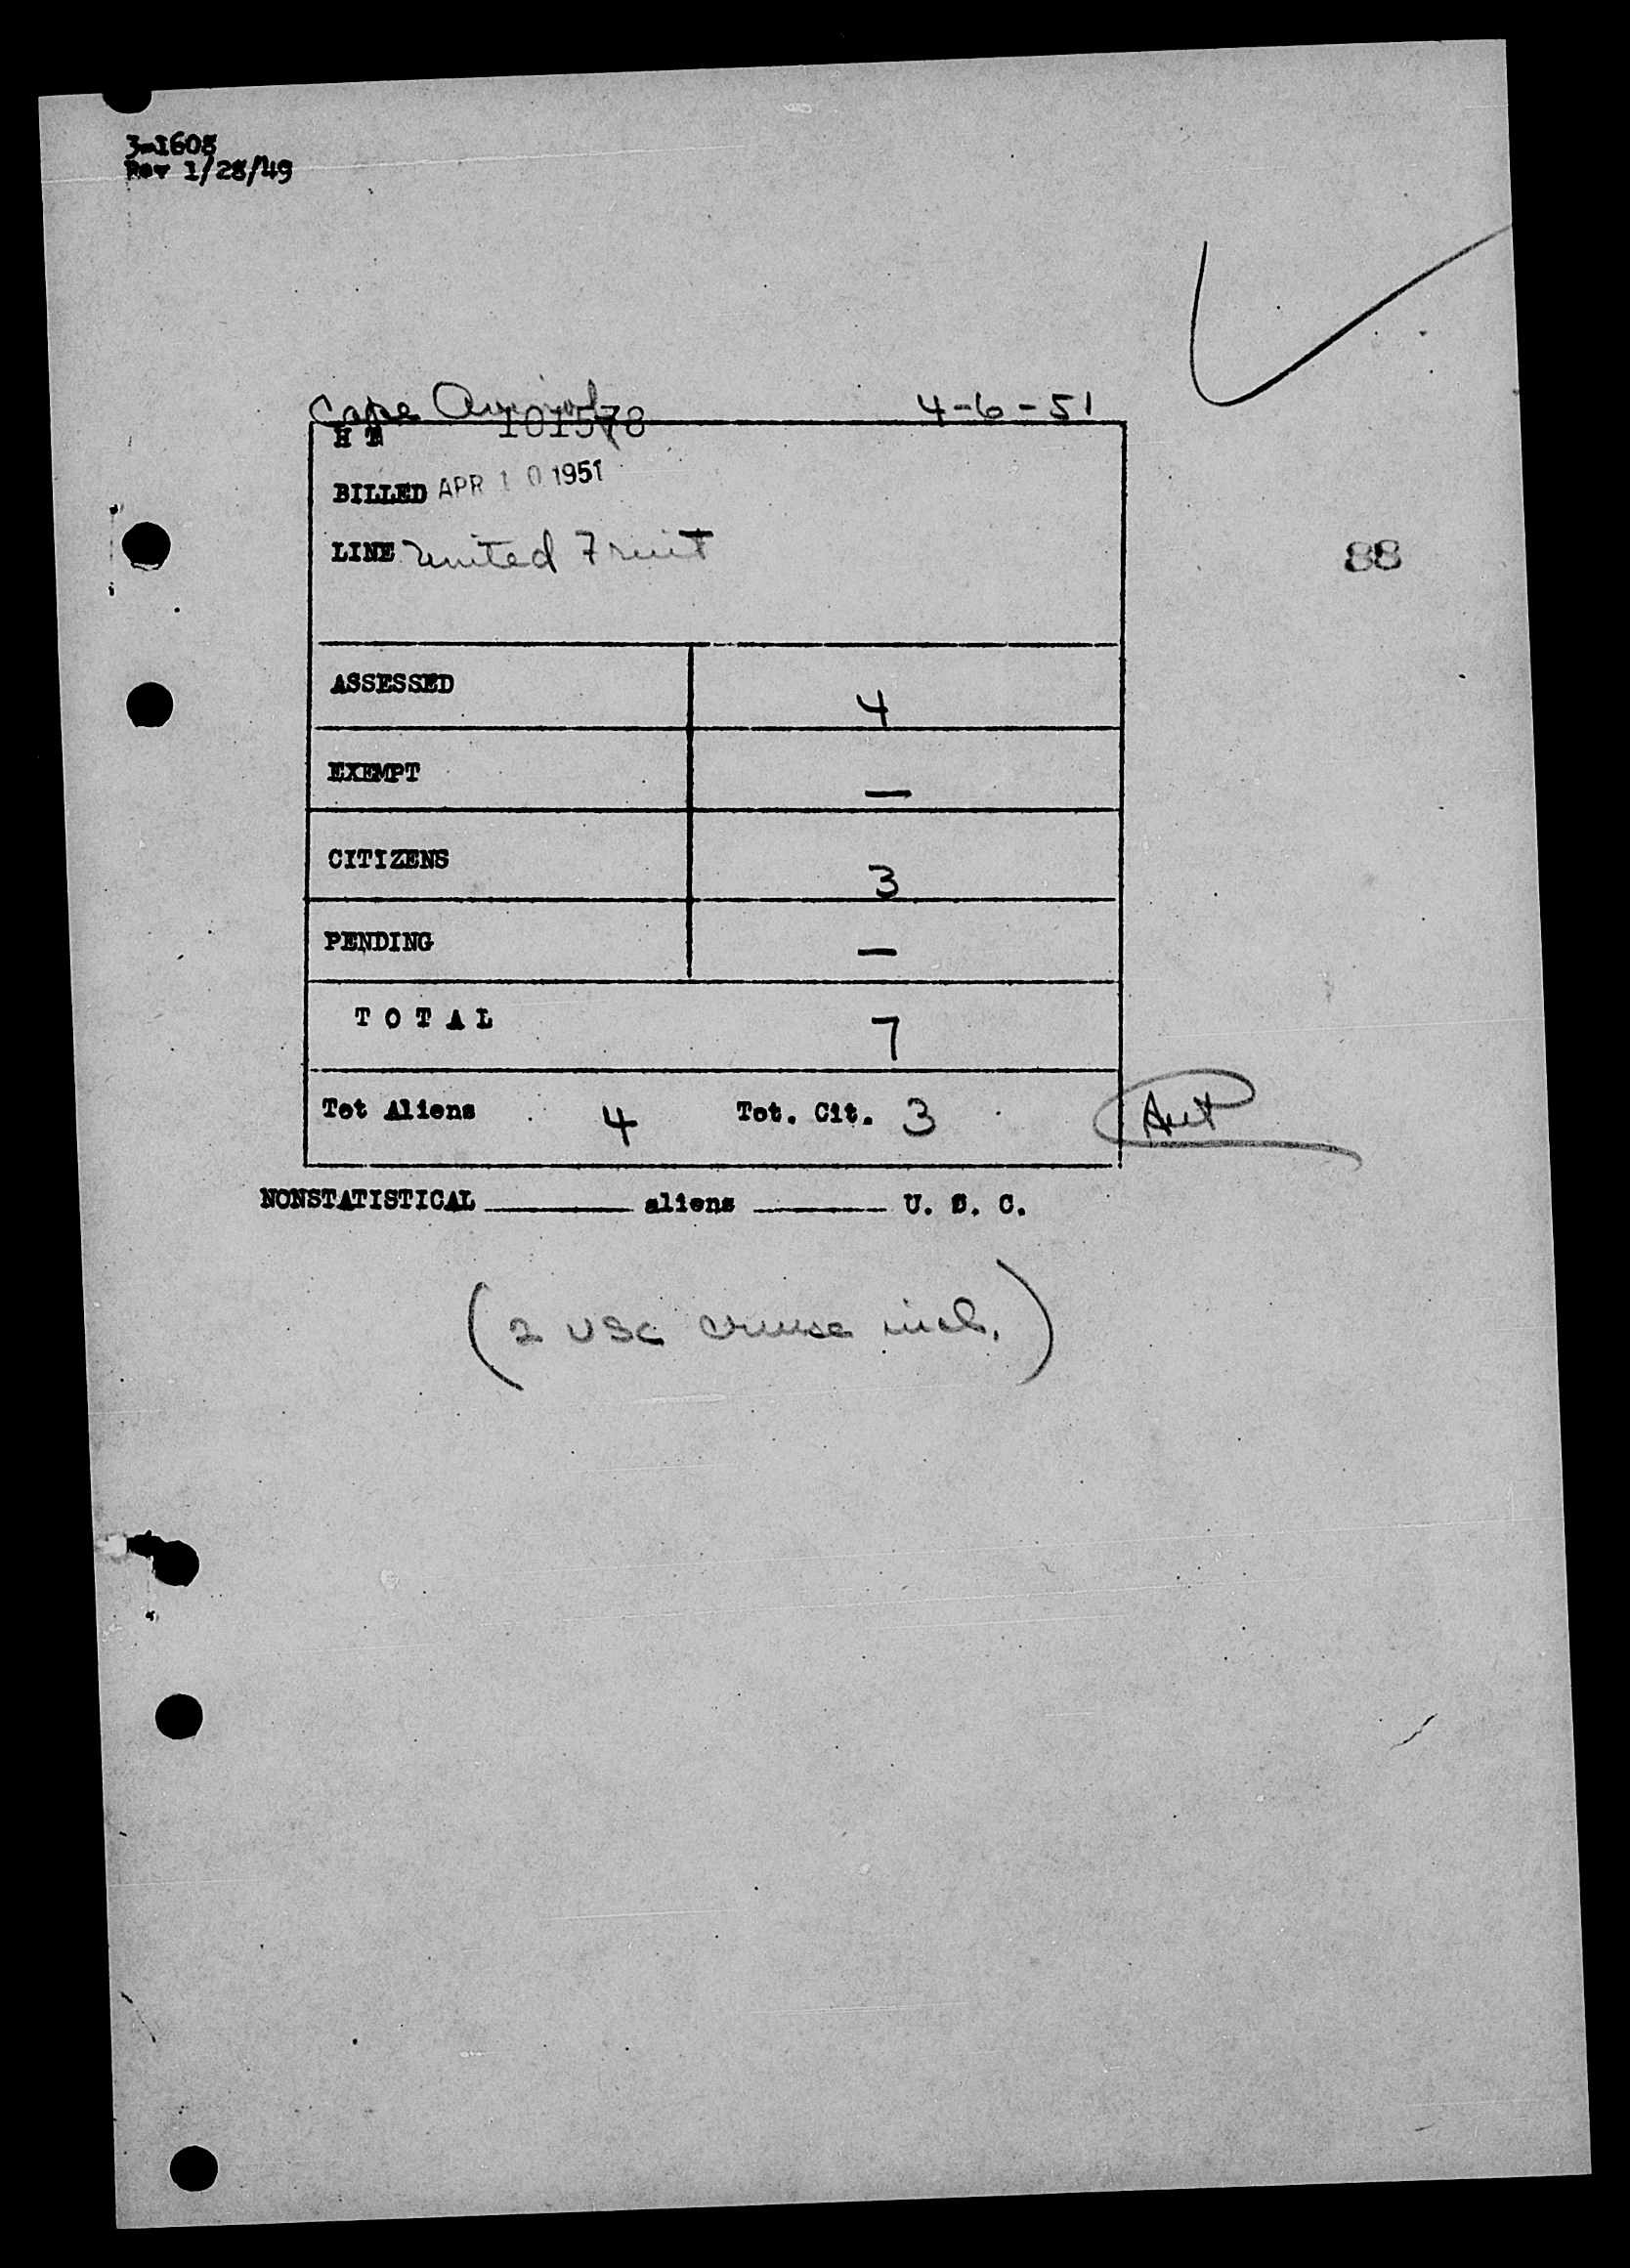 3-1608
Rev 1/28/49
Cape 4-6-51
H T 101578
BILLED APR 10 1951
LINE United Fruit
88
ASSESSED 4
EXEMPT —
CITIZENS 3
PENDING —
TOTAL 7
Tot Aliens 4 Tot. Cit. 3
NONSTATISTICAL ______ aliens ______ U. S. C.
(2 USC cruise incl.)